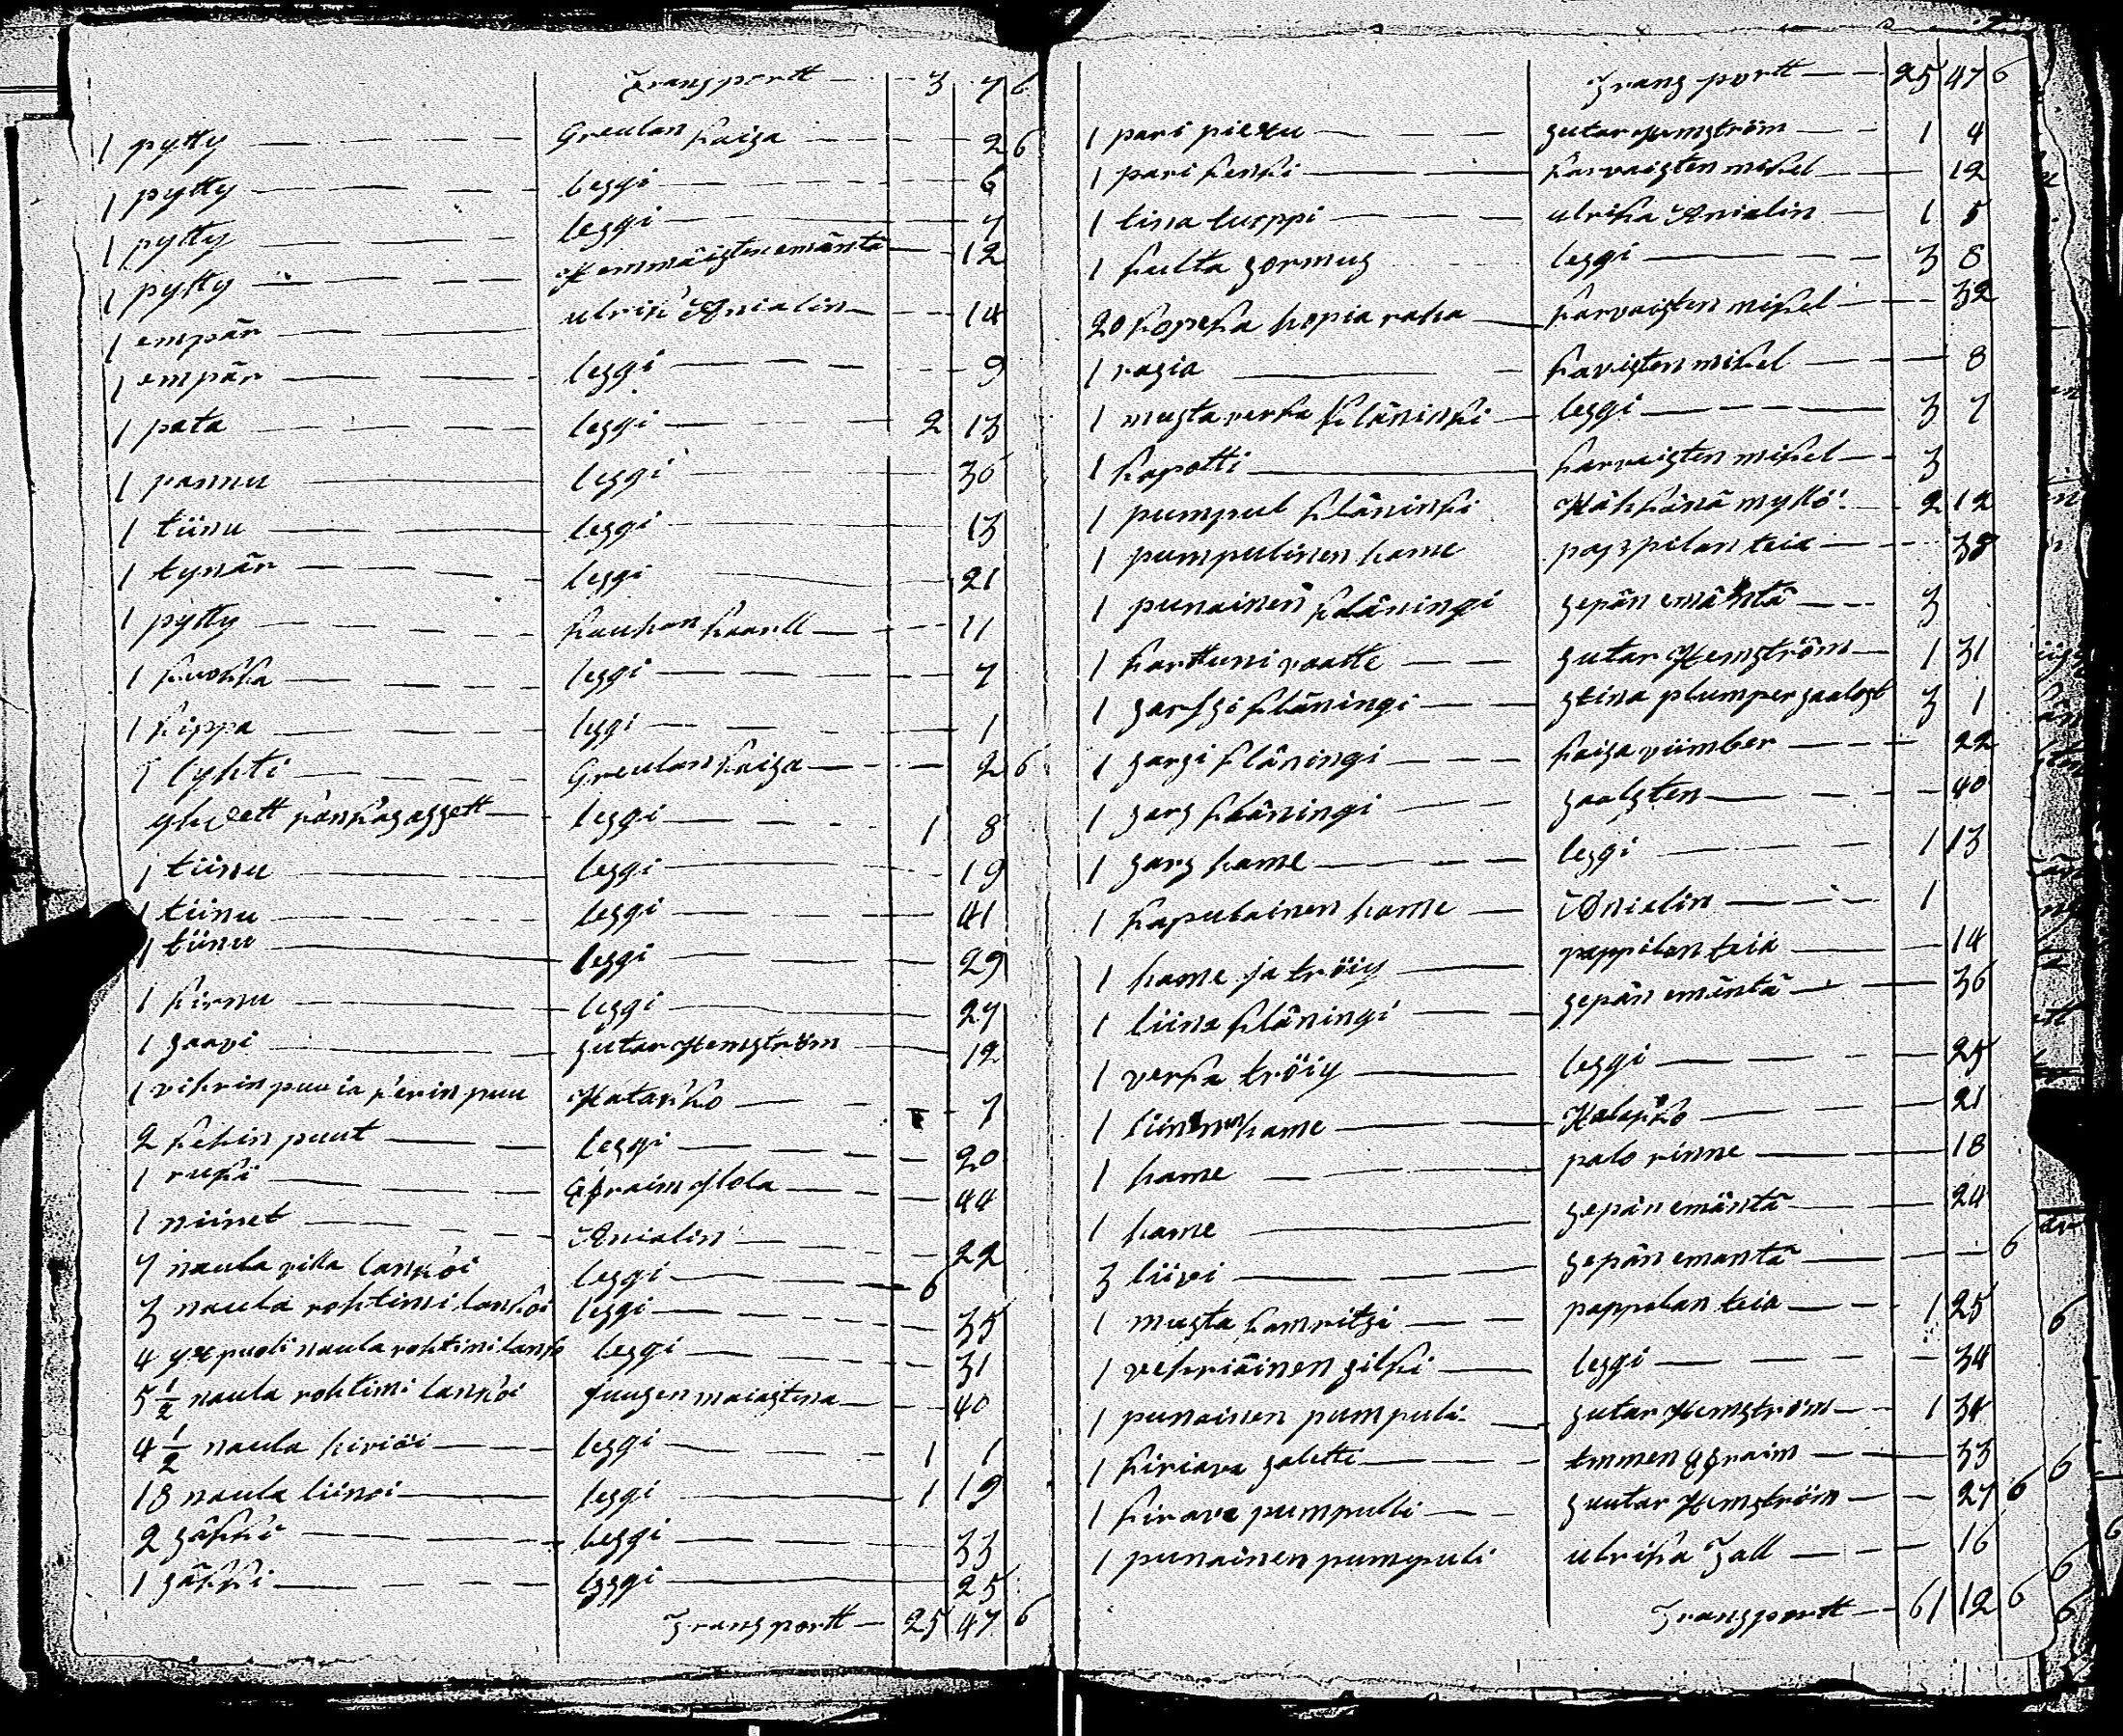 Transportt — 3 7 6
1 pytty — Greulan kaisa — 2 6
1 pytty — leski — 6
1 pytty — leski — 7
1 pytty — Hemmäisten emäntä — 12
1 empär — ulrik Anialin — 14
1 empär — leski — 9
1 pata — leski — 2 13
1 pannu — leski — 30
1 tiinu — leski — 13
1 tynär — leski — 21
1 pytty — kauhan kaarll — 11
1 kuokka — leski — 7
1 kippa — leski — 1
1 lyhti — Greulan kaisa — 2 6
kankas assett — leski — 1 8
1 tiinu — leski — 19
1 tiinu — leski — 41
1 tiinu — leski — 29
1 kirnu — leski — 27
1 saavi — sutar Hemström — 12
1 vihrin puu ia kerin puu — Hatakko — 7
2 kehin puut — leski — 20
1 ruki — Efraim Ilola — 44
1 niinet — Anialin — 22
7 naula villa lankoi — leski — 6
3 naula rohtimi lankoi — leski — 35
4 puoli naula rohtimi lanko — leski — 31
5 1/2 naula rohtimi lankoi — Juusen maiastina — 40
4 1/2 naula hiriöi — leski — 1 1
18 naula liinoi — leski — 1 19
2 säkki — leski — 33
1 säkki — leski — 25
Transportt — 25 47 6
Transportt — 25 47 6
1 pari piexu — sutar Hemström — 1 4
1 pari kenki — karvaisten mikel — 12
1 tina tuoppi — ulrika Anialin — 1 5
1 kulta sormus — leski — 3 8
20 kopeka hopia raha — karvaisten mikel — 32
1 rasia — kavisten mikel — 8
1 musta verka kläninki — leski — 3 7
1 kapotti — karvaisten mikel — 3
1 pumpul kläninki — Hähkänä myllö — 2 12
1 pumpulinen hame — pappilan teia — 38
1 punainen kläningi — sepän emäntä — 3
1 karttuni vaatte — sutar Hemström — 1 31
1 sarssi kläningi — stina plumper — 3 1
1 sarsi kläningi — kaisa viimber — 22
1 sars kläningi — saalsten — 40
1 sars hame — leski — 1 13
1 kapulainen hame — Anialin — 1
1 hame ja tröiy — pappilan teia — 14
1 liina kläningi — sepän emäntä — 36
1 verka tröiy — leski — 25
1 hame — 21
1 hame — palo rinne — 18
1 hame — sepän emäntä — 24
3 liivi — sepän emäntä — 6
1 musta kamritsi — pappilan teia — 1 25
1 vehriäinen silki — leski — 34
1 punainen pumpuli — sutar Hemström — 1 34
1 kiriava saletti — Efraim — 33
1 kirava pumpulli — suutar Hemström — 27 6
1 punainen pumpuli — ulrika Tall — 16
Transportt — 61 12 6